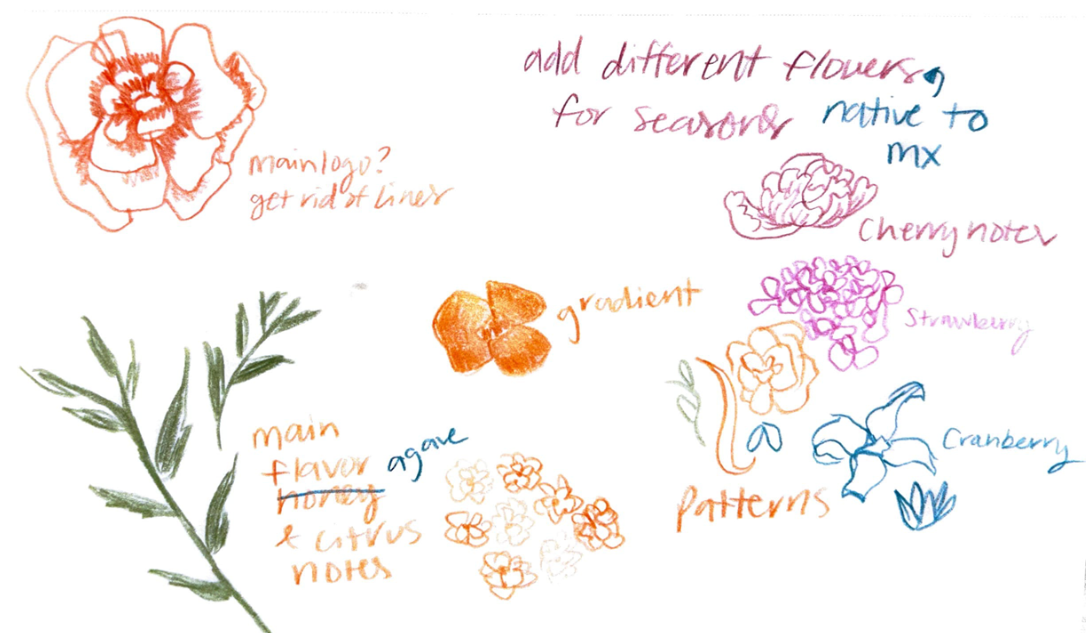 add different flowers,
for seasons native to
mx
main logo?
get rid of lines
Cherry notes
gradient
Strawberry
main
flavor agave
honey
& citrus
notes
Cranberry
patterns